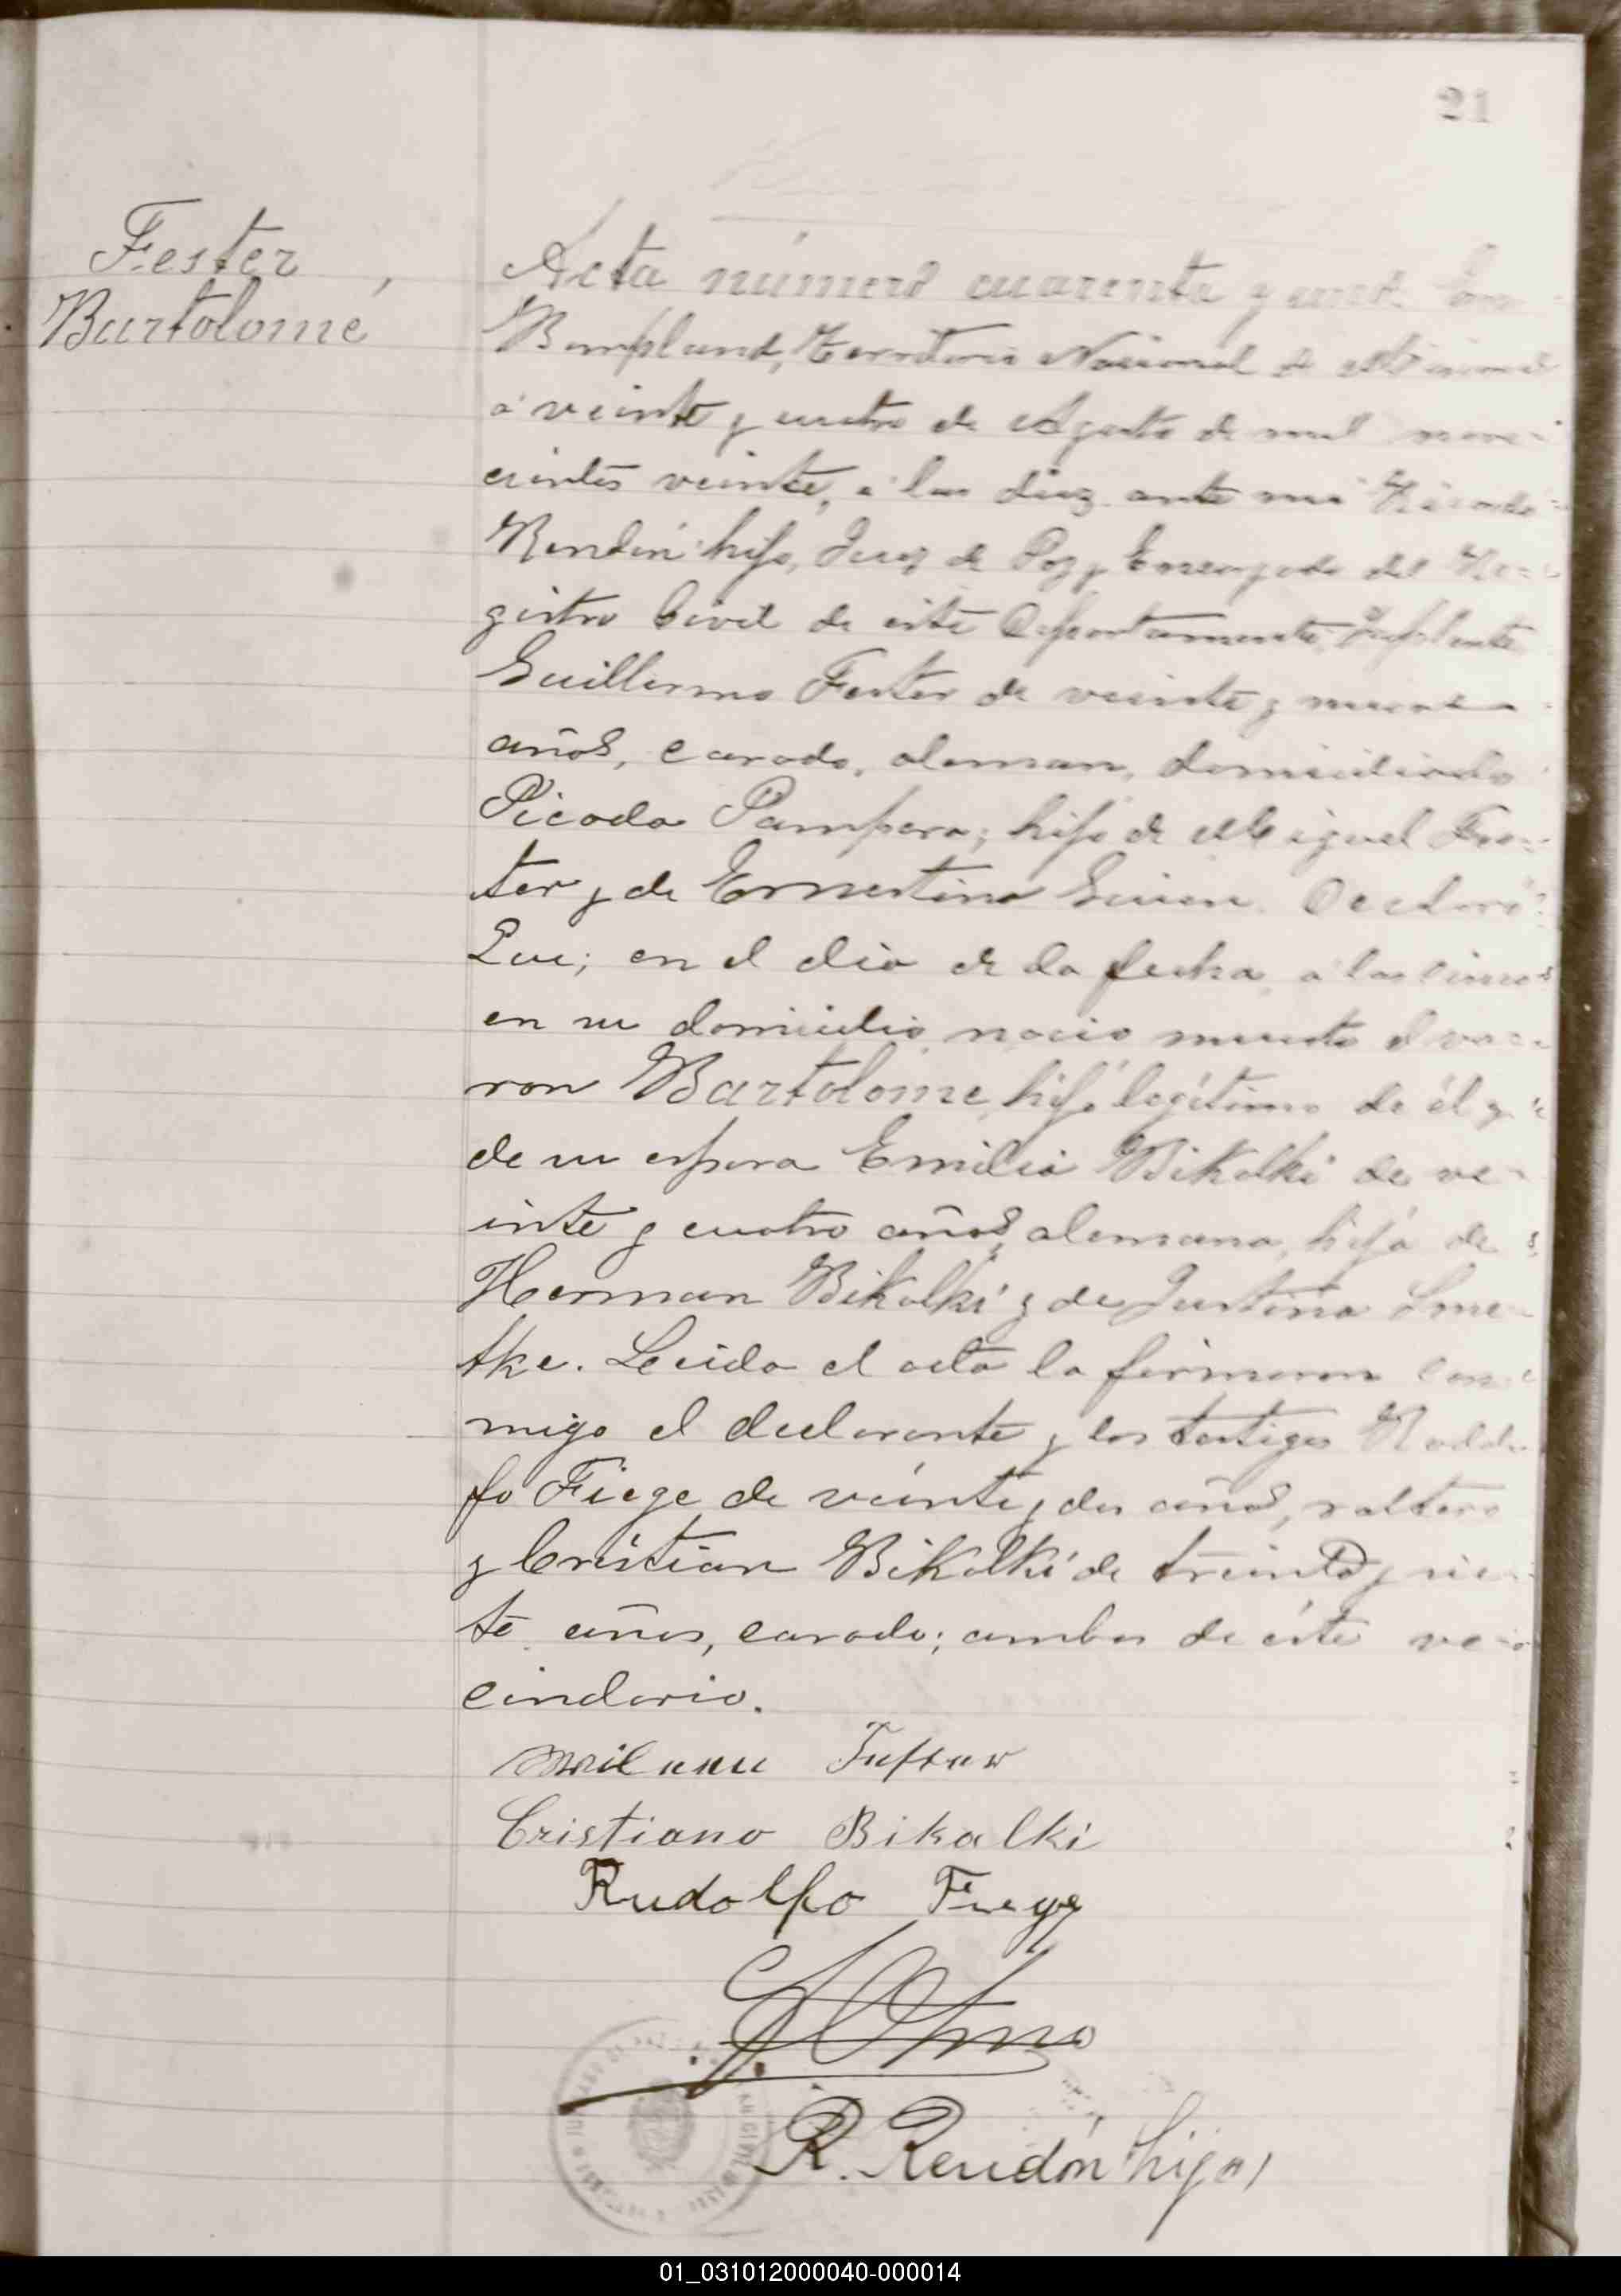 21
Fester,
Bartolomé
Acta número cuarenta y una. En
Bompland, Territorio Nacional de Misiones
á veinte y cuatro de Agosto de mil nove-
cientos veinte, á las diez ante mi Ricardo
Rendón hijo, Juez de Paz y Encargado del Re-
gistro Civil de este Departamento, Suplente
Guillermo Fester de veinte y nueve
años, casado, aleman, domiciliado
Picada Pampera; hijo de Miguel Fes-
ter y de Ernestina Declaró:
Que; en el dia de la fecha, á las cinco
en su domicilio nacio muerto el va-
ron Bartolome, hijo legítimo de él y
de su esposa Emilia Bikalki de ve-
inte y cuatro años, alemana, hija de
Herman Bikalki y de Justina Sme-
tke. Leida el acta la firmaron con-
migo el declarante y los testigos Rodol-
fo Fiege de veinte y dos años, soltero
y Cristian Bikalki de treinta y sie-
te años, casado; ambos de éste ve-
cindario.
Cristiano Bikalki
Rudolfo Fiege
R. Rendón hijo
01_031012000040-000014